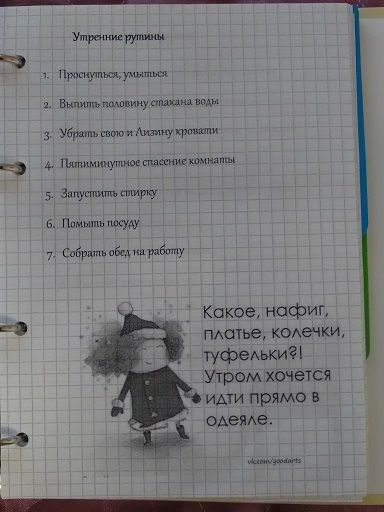 Утренние рутины
1. Проснуться, умыться
2. Выпить половину стакана воды
3. Убрать свою и Лизину кровати
4. Пятиминутное спасение комнаты
5. Запустить стирку
6. Помыть посуду
7. Собрать обед на работу
Какое, нафиг,
платье, колечки,
туфельки?!
Утром хочется
идти прямо в
одеяле.
vk.com/goodarts